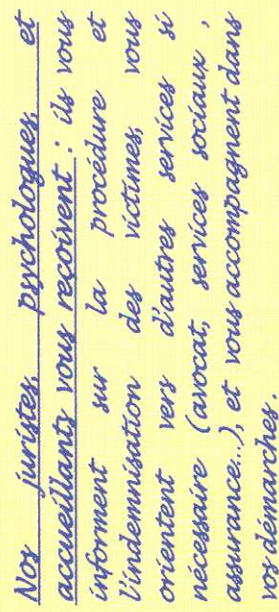 Nos juristes, psychologues, et
accueillants vous reçoivent : ils vous
informent sur la procédure et
l'indemnisation des victimes, vous
orientent vers d'autres services si
nécessaire (avocat, services sociaux,
assurance...), et vous accompagnent dans
vos démarches.